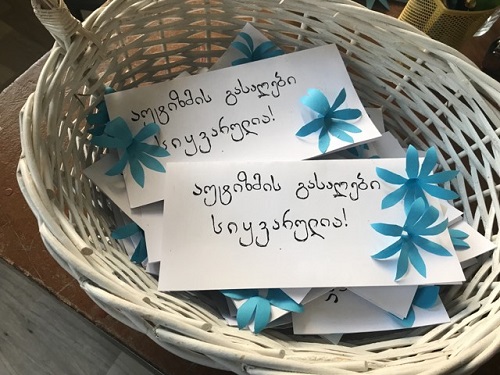 აუტიზმის გასაღები
სიყვარულია!
აუტიზმის გასაღები
სიყვარულია!